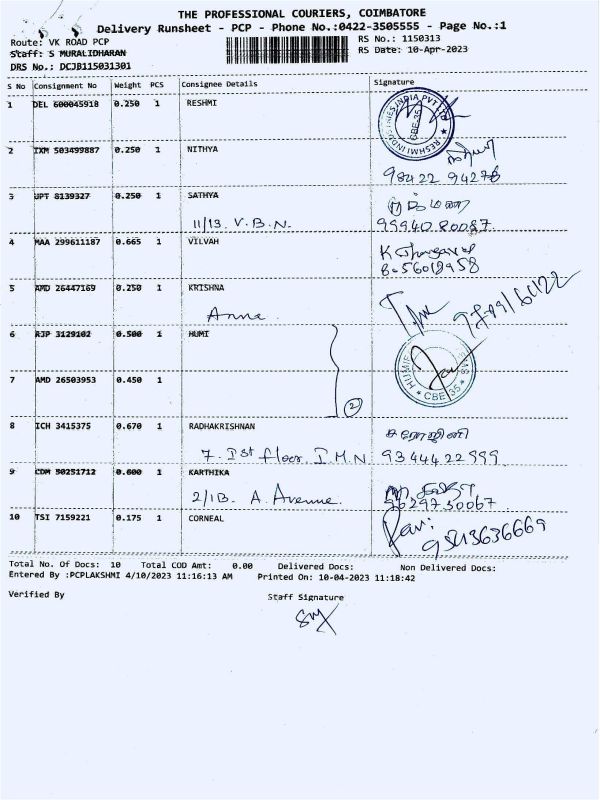 THE PROFESSIONAL COURIERS, COIMBATORE
Delivery Runsheet - PCP - Phone No.:0422-3505555 - Page No.:1
Route: VK ROAD PCP
RS No.: 1150313
Staff: S MURALIDHARAN
RS Date: 10-Apr-2023
DRS No.: DCJB115031301
S No Consignment No Weight PCS Consignee Details Signature
1 DEL 600045918 0.250 1 RESHMI
RESHMI INDUSTRIES INDIA PVT LTD
CBE-35
2 IXM 503499887 0.250 1 NITHYA
98422 94278
3 JPT 8139327 0.250 1 SATHYA
11/13. V.B.N. 99940 80087.
4 MAA 299611187 0.665 1 VILVAH
K Thangavel
8056012958
5 AMD 26447169 0.250 1 KRISHNA
Anna
6 RJP 3129102 0.500 1 HUMI
CBE 35
7 AMD 26503953 0.450 1
2
8 ICH 3415375 0.670 1 RADHAKRISHNAN
சரோஜினி
7. Ist floor. I.M.N. 9344422999.
9 CDM 50251712 0.600 1 KARTHIKA
2/1B. A. Avenue. 9629730067
10 TSI 7159221 0.175 1 CORNEAL
9543636669
Total No. Of Docs: 10 Total COD Amt: 0.00 Delivered Docs: Non Delivered Docs:
Entered By :PCPLAKSHMI 4/10/2023 11:16:13 AM Printed On: 10-04-2023 11:18:42
Verified By Staff Signature